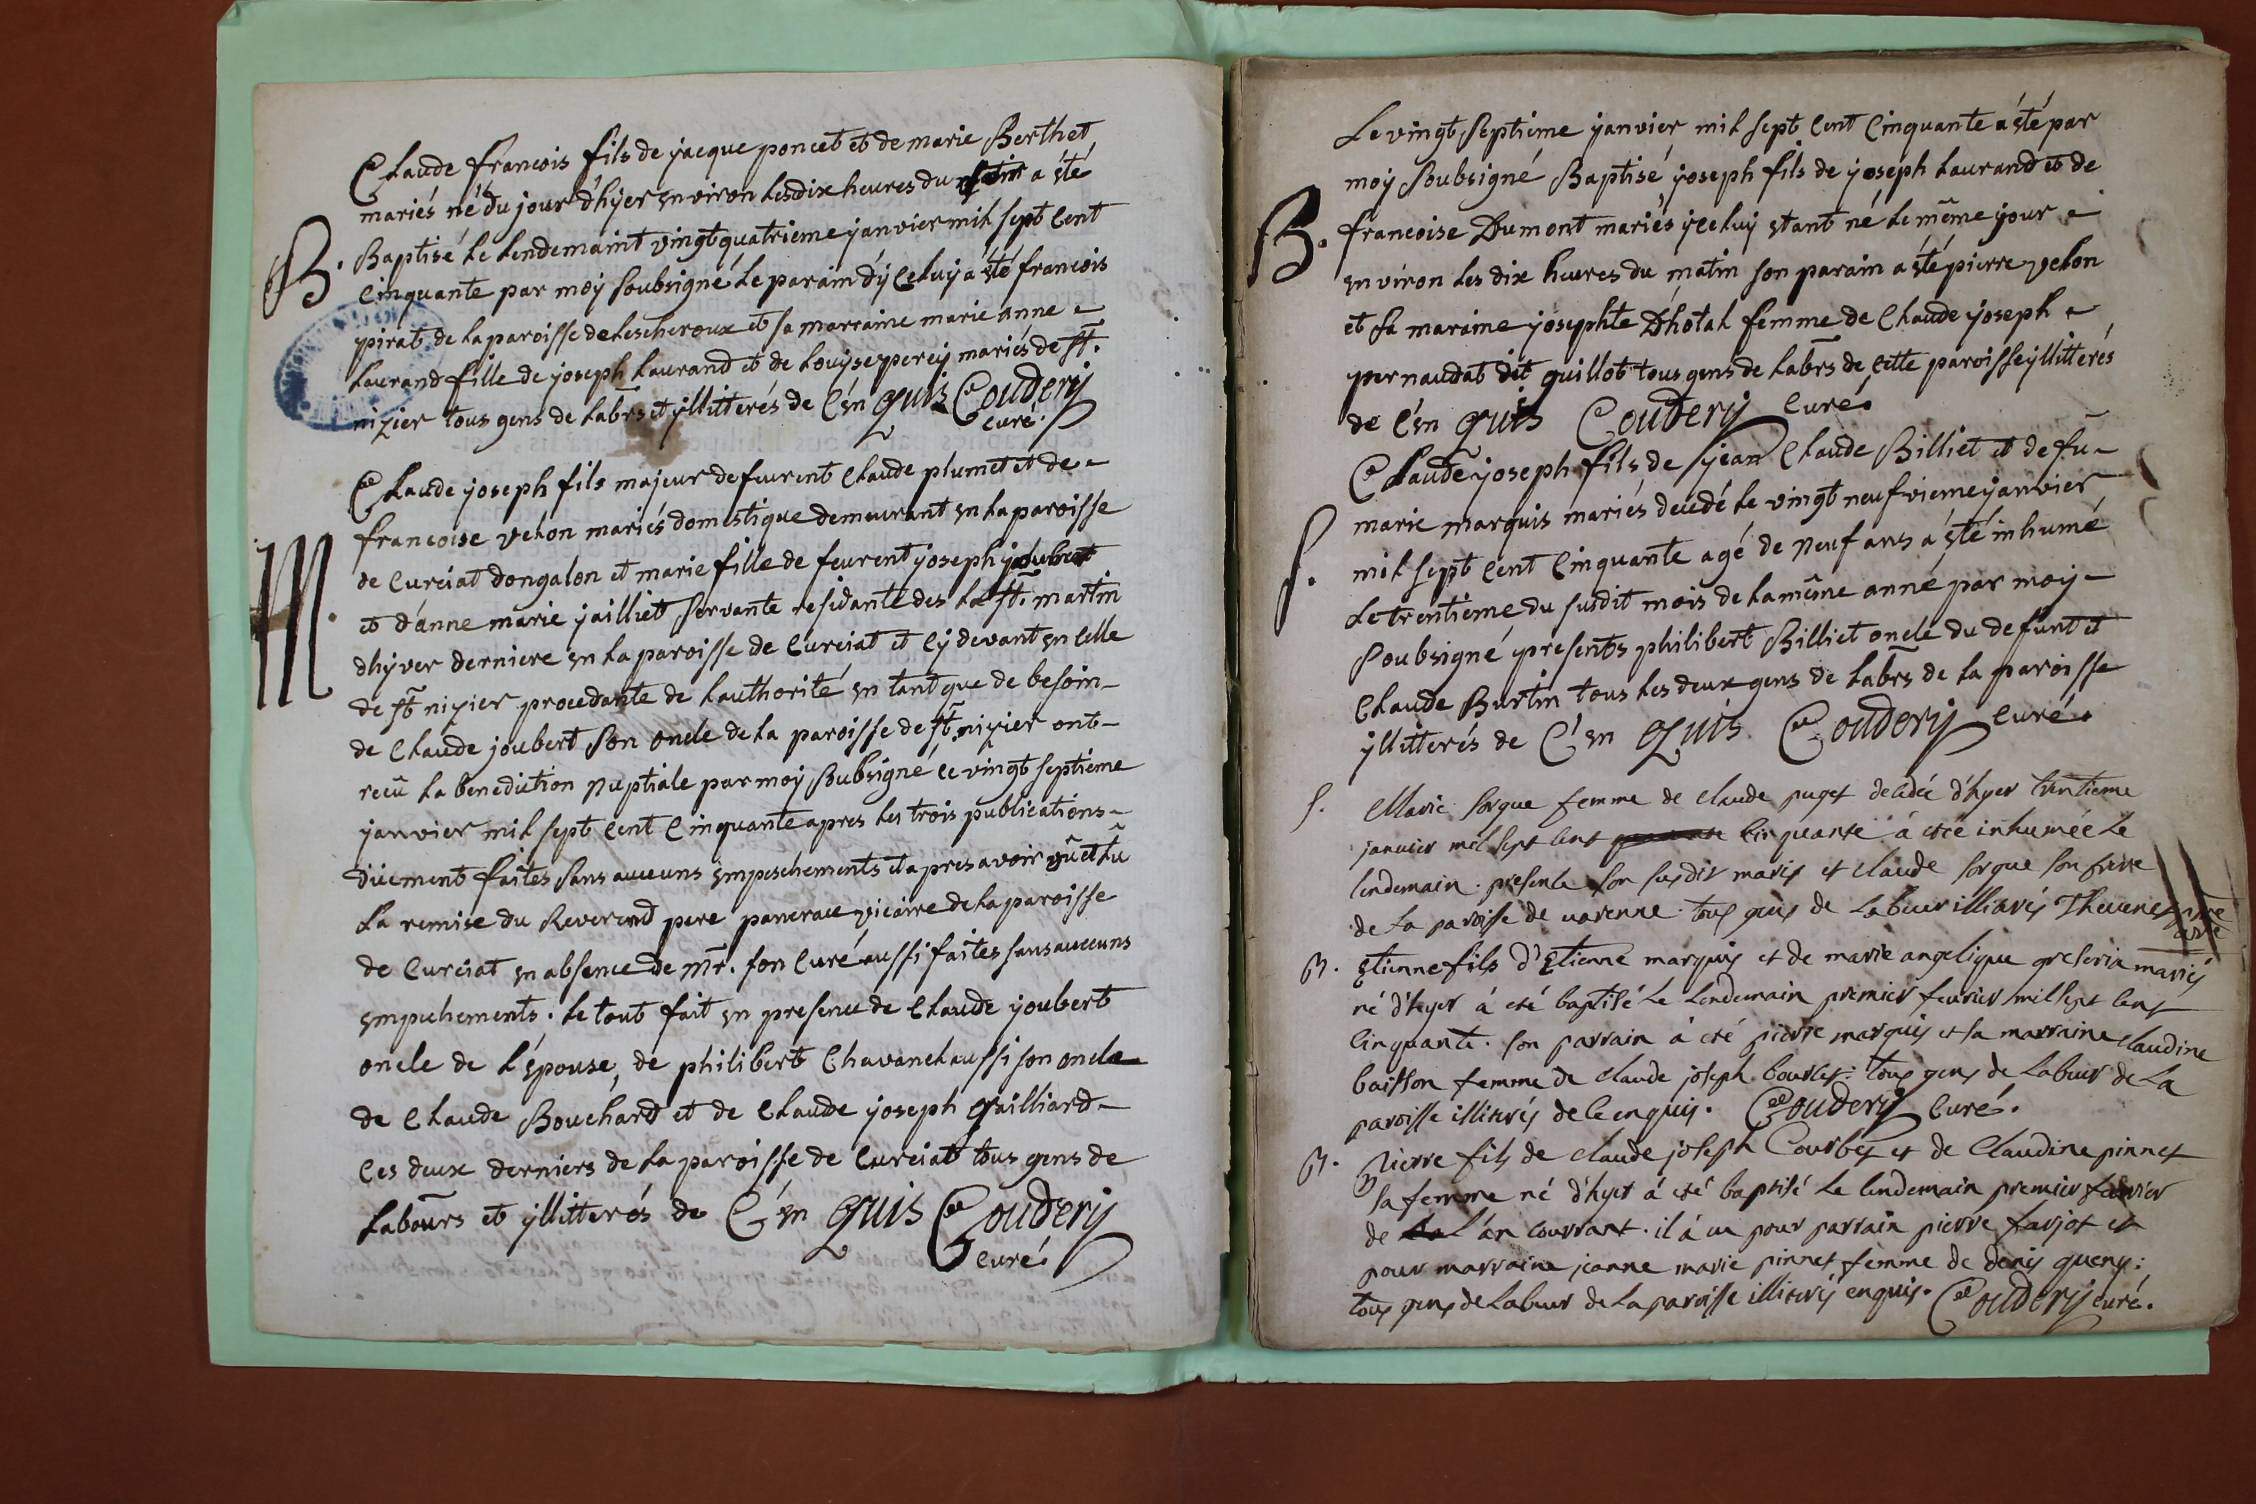 Claude francois fils de jacque poncet et de marie Berthet
mariés né du jour d'hÿer environ les dix heures du a été
B. Baptisé le lendemaint vingt quatrieme janvier mil sept cent
cinquante par moÿ soubsigné le parain d'ÿ celuÿ a été francois
pirat de la paroisse de lescheroux et sa marraine marie anne
laurand fille de joseph laurand et de louÿse perreÿ mariés de st.
nizier tous gens de labrs et ÿllitterés de c'en quis Couderÿ
curé.
Claude joseph fils majeur de feurent Claude plumet et de
francoise velon mariés domestique demeurant en la paroisse
de Curciat dongalon et marie fille de feurent joseph joubert
M. et d'anne marie jailliet servante residante des la st. martin
dhÿver derniere en la paroisse de Curciat et cÿ devant en celle
de st nizier procedante de lauthorité en tant que de besoin
de Claude joubert son oncle de la paroisse de st. nizier ont
recû la benediction nuptiale par moÿ soubsigné ce vingt septieme
janvier mil sept cent cinquante apres les trois publications
düement faites sans aucuns empeschements et apres avoir vû et lû
la remise du Reverend pere pancrace vicaire de la paroisse
de Curciat en absence de mr. son curé aussi faites sans aucuns
empechements. le tout fait en presence de Claude joubert
oncle de l'épouse, de philibert Chavanel aussi son oncle
de Claude Bouchard et de Claude joseph gailliard
ces deux derniers de la paroisse de Curciat tous gens de
labours et ÿllitterés de C'en quis Couderÿ
curé
Le vingt septieme janvier mil sept cent cinquante a été par
moÿ soubsigné Baptisé joseph fils de joseph laurand et de
B. francoise Dumont mariés ÿceluÿ étant né le même jour
environ les dix heures du matin son parain a été pierre velon
et sa maraine josephte Dhotal femme de Claude joseph
pernaudat dit guillot tous gens de labrs de cette paroisse ÿllitterés
de c'en quis Couderÿ curé.
Claude joseph fils de jean Claude Billiet et de fu
S. marie marquis mariés décédé le vingt neufvieme janvier
mil sept cent cinquante agé de neuf ans a été inhumé
le trentieme du susdit mois de la même anné par moÿ
soubsigné presents philibert Billiet oncle du defunt et
Claude Burtin tous les deux gens de labrs de la paroisse
ÿllitterés de C'en quis Couderÿ curé.
S. Marie sorgue femme de claude puget decedée d'hyer trentieme
janvier mil sept cent cinquante à eté inhumée le
lendemain. presents son susdit maris et claude sorgue son frere
de la paroisse de varenne. tous gens de labeur illiarés Thevenet
B. Etienne fils d'Etienne marquis et de marie angelique mariés
né d'hyer à eté baptisé le lendemain premier fevrier mil sept cent
cinquante. son parrain à eté pierre marquis et sa marraine claudine
baisson femme de claude joseph bourlet: tous gens de labeur de la
paroisse illiterés de ce enquis. Couderÿ curé.
B. Pierre fils de claude joseph Courbet et de Claudine pinnet
sa femme né d'hyer à eté baptisé le lendemain premier fevrier
de l'an courrant. il à eu pour parrain pierre farjot et
pour marraine jeanne marie pinnet femme de denis :
tous gens de labeur de la paroisse illiterés enquis. Couderÿ curé.